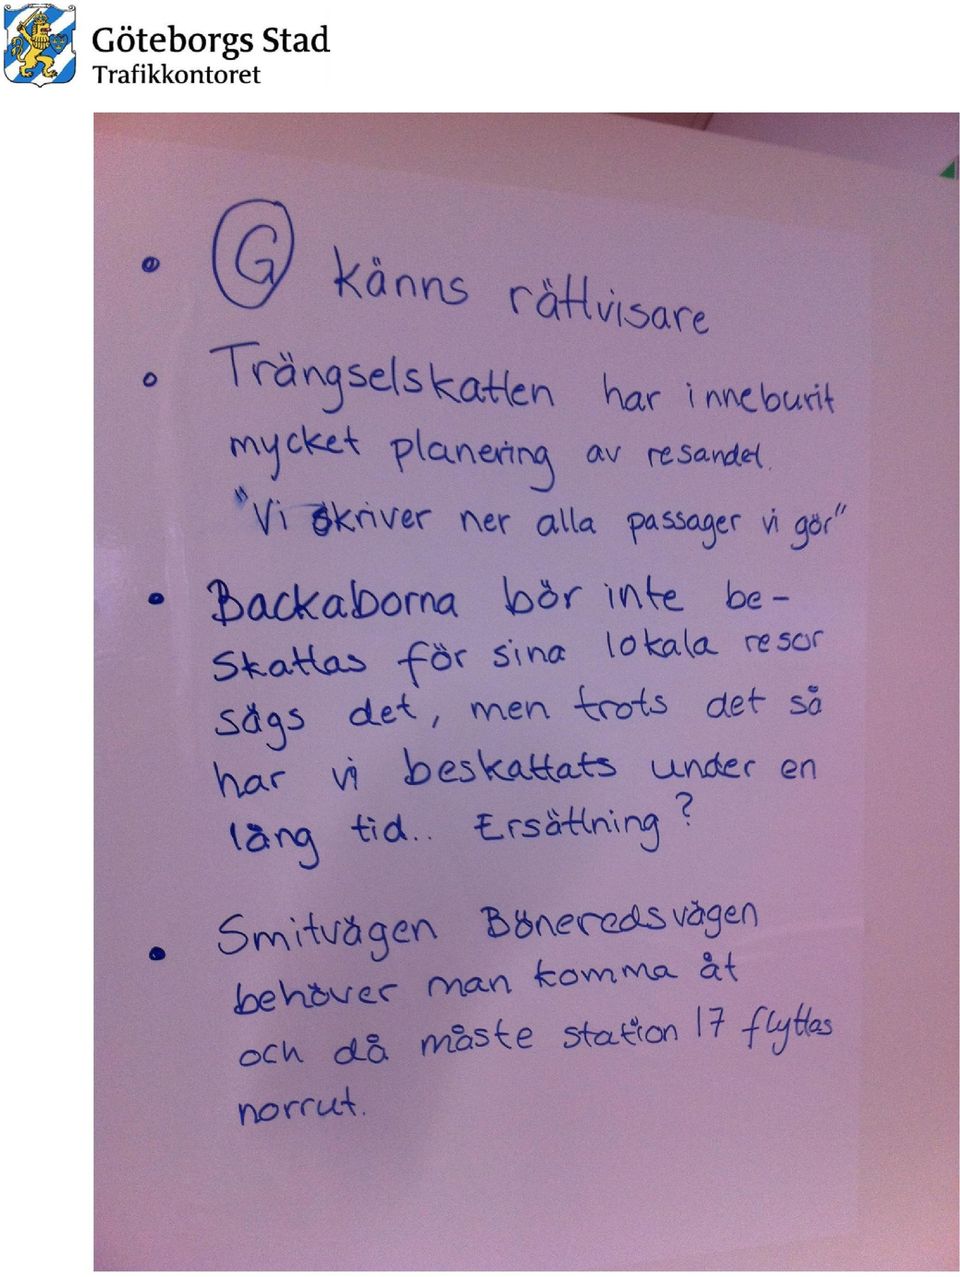 Göteborgs Stad
Trafikkontoret
• G känns rättvisare
• Trängselskatten har inneburit
mycket planering av resandet.
"Vi skriver ner alla passager vi gör"
• Backaborna bör inte be-
skattas för sina lokala resor
sägs det, men trots det så
har vi beskattats under en
lång tid.. Ersättning?
• Smitvägen Böneredsvägen
behöver man komma åt
och då måste station 17 flyttas
norrut.